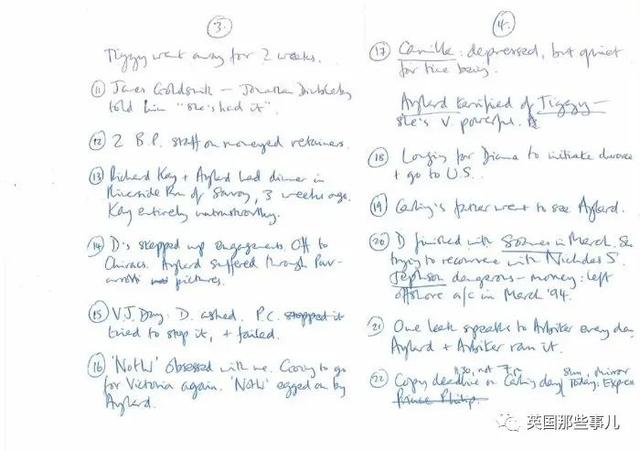 3.
Tiggy went away for 2 weeks.
11 James Goldsmith – Jonathan Dimbleby
told him "she's had it".
12 2 B.P. staff on moneyed retainers.
13 Richard Kay + Aylard had dinner in
Riverside Rm of Savoy, 3 weeks ago.
Kay entirely untrustworthy.
14 D's stepped up engagements. Off to
Chiracs. Aylard suffered through
pictures.
15 V.J. Day. D. asked. P.C. stopped it
tried to stop it, + failed.
16 'NoTW' obsessed with me. Going to go
for Victoria again. 'NoTW' egged on by
Aylard.
4.
17 Camilla: depressed, but quiet
for time being.
Aylard terrified of Tiggy –
she's v. powerful.
18 Longing for Diana to initiate divorce
+ go to U.S.
19 Carling's father went to see Aylard.
20 D finished with Soames in March. Is
trying to reconvene with Nicholas S.
Jephson dangerous – money: left
offshore a/c in March '94.
21 One leak speaks to Arbiter every day.
Aylard + Arbiter ran it.
11.30, not 7 Sun, Mirror
22 Copy deadline on Carling day, Today, Express
Prince Philip.
英国那些事儿